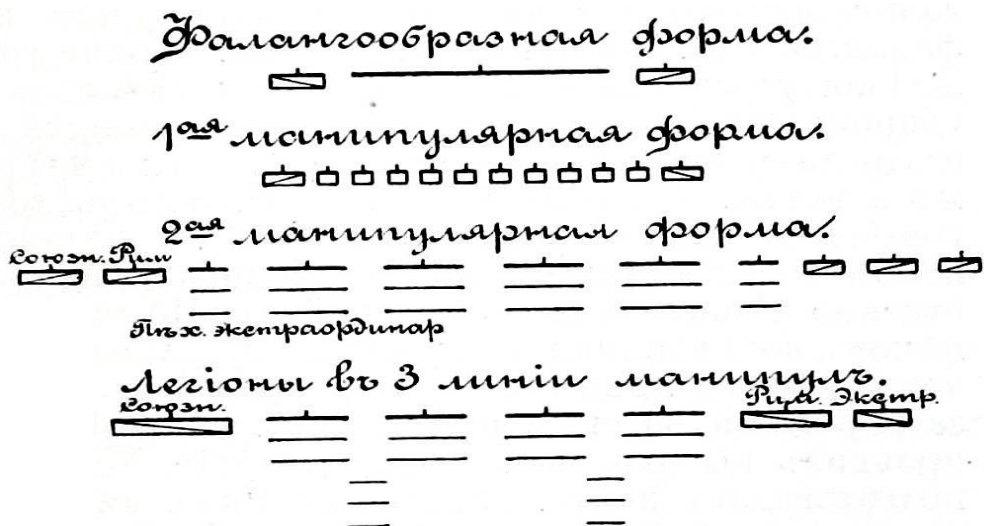 Фалангообразная форма.
1ая манипулярная форма.
2ая манипулярная форма.
Союзн. Рим
Пѣх. экстраординар
Легіоны въ 3 линіи манипулъ.
Союзн.
Рим. Экстр.